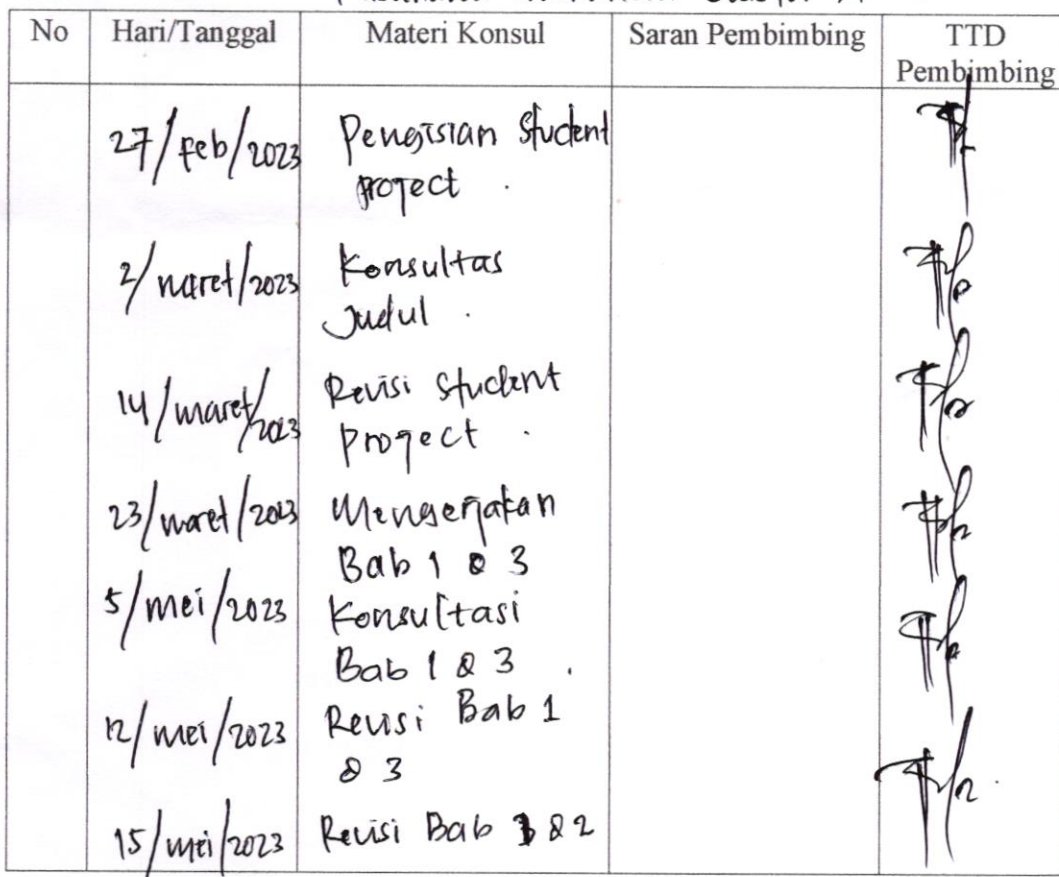 No Hari/Tanggal Materi Konsul Saran Pembimbing TTD
Pembimbing
27/feb/2023 Pengisian student
project.
2/maret/2023 Konsultas
Judul.
14/maret/2023 Revisi student
project.
23/maret/2023 Mengerjakan
Bab 1 & 3
5/mei/2023 Konsultasi
Bab 1 & 3.
12/mei/2023 Revisi Bab 1
& 3
15/mei/2023 Revisi Bab & 2